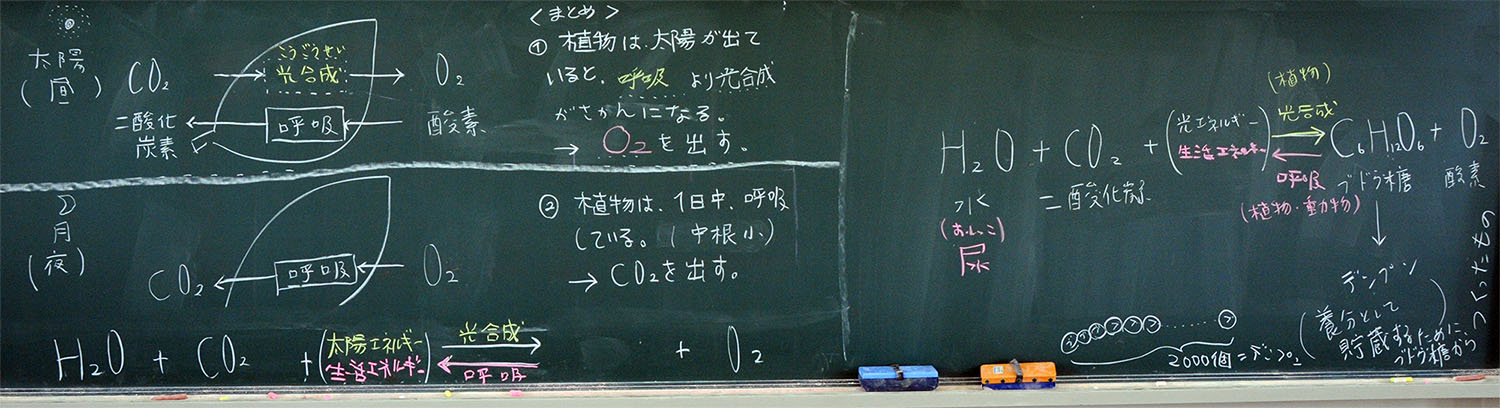 太陽
(昼)
CO₂
こうごうせい
光合成
O₂
二酸化
炭素
呼吸
酸素
月
(夜)
CO₂
呼吸
O₂
<まとめ>
① 植物は、太陽が出て
いると、呼吸より光合成
がさかんになる。
→ O₂を出す。
② 植物は、1日中、呼吸
している。(中根小)
→ CO₂を出す。
H₂O + CO₂ + (太陽エネルギー 光合成
生活エネルギー) 呼吸 + O₂
(植物)
光合成
H₂O + CO₂ + (光エネルギー
生活エネルギー) C₆H₁₂O₆ + O₂
呼吸
(植物・動物)
水
(おしっこ)
尿
二酸化炭素
ブドウ糖
酸素
デンプン
(養分として
貯蔵するために、
ブドウ糖から
つくったもの)
2000個